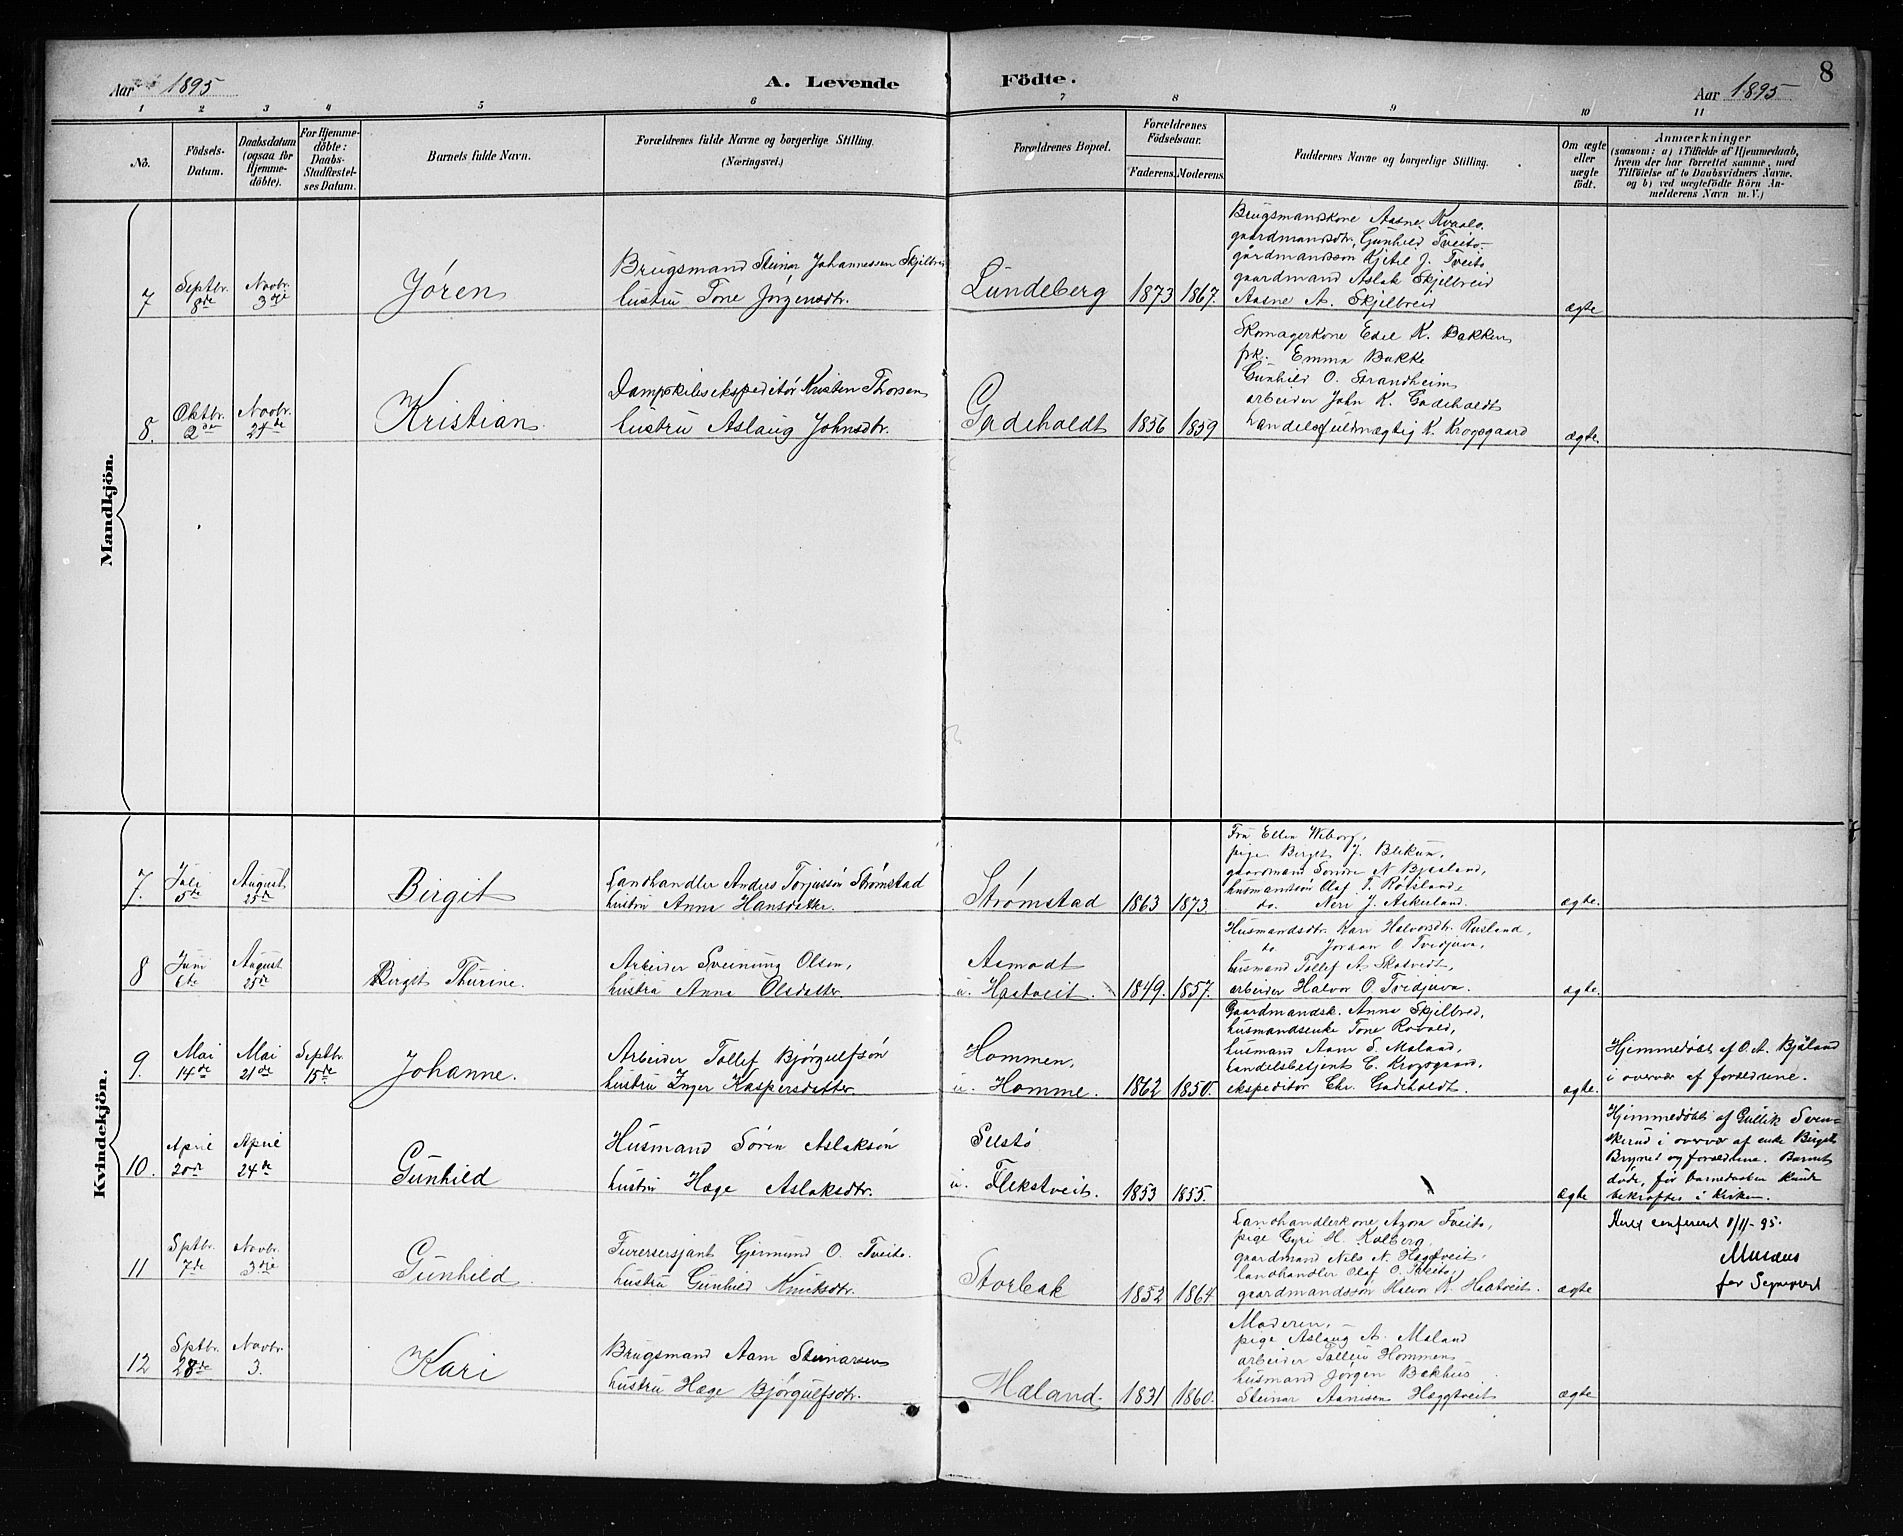 Aar 1895
A. Levende
Födte.
Aar 1895
8
1 2 3 4 5 6 7 8 9 10 11
No.
Födsels-
Datum.
Daabsdatum
(ogsaa for
Hjemme-
döbte).
For Hjemme-
döbte:
Daabs-
Stadfæstel-
ses Datum.
Barnets fulde Navn.
Forældrenes fulde Navne og borgerlige Stilling.
(Næringsvei.)
Forældrenes Bopæl.
Forældrenes
Födselsaar.
Faderens. Moderens.
Faddernes Navne og borgerlige Stilling.
Om ægte
eller
uægte
födt.
Anmærkninger
(saasom: a) i Tilfælde af Hjemmedaab,
hvem der har forrettet samme, med
Tilföielse af to Daabsvidners Navne.
og b) ved uægtefödte Börn An-
melderens Navn m. V.)
Mandkjön.
7
Septbr.
8de
Novbr.
3die
Jøren
Brugsmand Steinar Johannessen Skjelbrei
hustru Tone Jørgensdtr.
Lundeberg
1873 1867.
Brugsmandskone Aasne Kvaale
gaardmandsdtr. Gunhild Tveito
gårdmandssön Kjetil J. Tveito
gaardmand Aslak Skjelbreid
Aasne A. Skjelbreid
ægte
8.
Oktbr.
2den
Novbr.
24de
Kristian
Dampskibsekspeditör Kristen Thorsen
hustru Aslaug Johnsdtr.
Gadeholdt
1856 1859
Skomagerkone Edel K. Bakken
frk. Emma Bakke
Gunhild O. Strandheim
arbeider John K. Gadeholdt
handelsfuldmægtig K. Krogsgaard
ægte
Kvindekjön.
7.
Juli
5de
August
25de
Birgit
Landhandler Anders Torjussön Strømstad
hustru Anne Hansdatter.
Strømstad
1863 1873.
Fru Ellen Wiborg,
pige Birgit J. Blekum,
gaardmand Sondre N Bjaaland,
husmandssön Olaf T. Rötsland,
do. Neri J. Askerland.
ægte.
8
Juni
6te
August
25de
Birgit Thurine.
Arbeider Sveinung Olsen,
hustru Anne Olsdatter.
Aamodt
u. Haatveit.
1849. 1857.
Husmandsdtr. Kari Halvorsdtr. Rusland,
do Joraan O Tvidjuva,
husmand Tollef A. Skatvedt,
arbeider Halvor O. Tvidjuva.
ægte.
9.
Mai
14de
Mai
21de
Septbr.
15de
Johanne.
Arbeider Tollef Bjørgulfssön
hustru Inger Kaspersdatter
Hommen,
u. Homme.
1862 1850.
Gaardmandsk. Anne Skjelbred,
husmandsenke Tone Rovold,
husmand Aam S. Maland,
handelsbetjent C. Krogsgaard,
ekspeditör Chr. Gadeholdt.
ægte.
Hjemmedøbt af O. A. Bjåland
i overvær af forældrene.
10.
April
20de
April
24de
Gunhild
Husmand Sören Aslaksön
hustru Hæge Aslaksdtr.
Selstö
u. Flekstveit.
1853 1855.
ægte
Hjemmedøbt af Gullik Sven-
skerud i overvær af enke Birgit
og forældrene. Barnet
døde, før barnedaaben kunde
bekræftes i Kirken.
11
Sptbr.
7de
Novbr.
3die
Gunhild
Furersersjant Gjermund O. Tveito.
hustru Gunhild Knutsdtr.
Storbak
1852 1864
Landhandlerkone Tveito,
pige Gyri H. Kolberg,
gaardmand Nils N. Hægtveit,
landhandler Olaf O. Tveito,
gaardmandssön Halvor K. Haatveit.
ægte
Rett confereret 11/11-95.
Musæus
for Sogneprest
12
Sptbr.
28de
Novbr.
3.
Kari
Brugsmand Aam Steinarsen
hustru Hæge Bjørgulfsdtr.
Mæland.
1831 1860.
Moderen,
pige Aslaug A. Maland
arbeider Tollev Hommen
husmand Jørgen Bakhus
Steinar Aamsen Hæggtveit
ægte